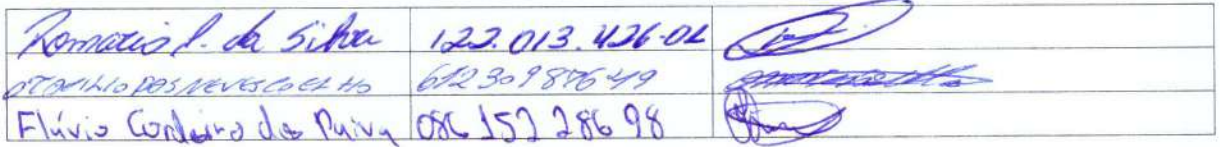 Romario P. da Silva 122.013.426-02
OTONILIO DAS NEVES COELHO 612309876-49
Flávio Cordeiro de Paiva 086 152 286 98